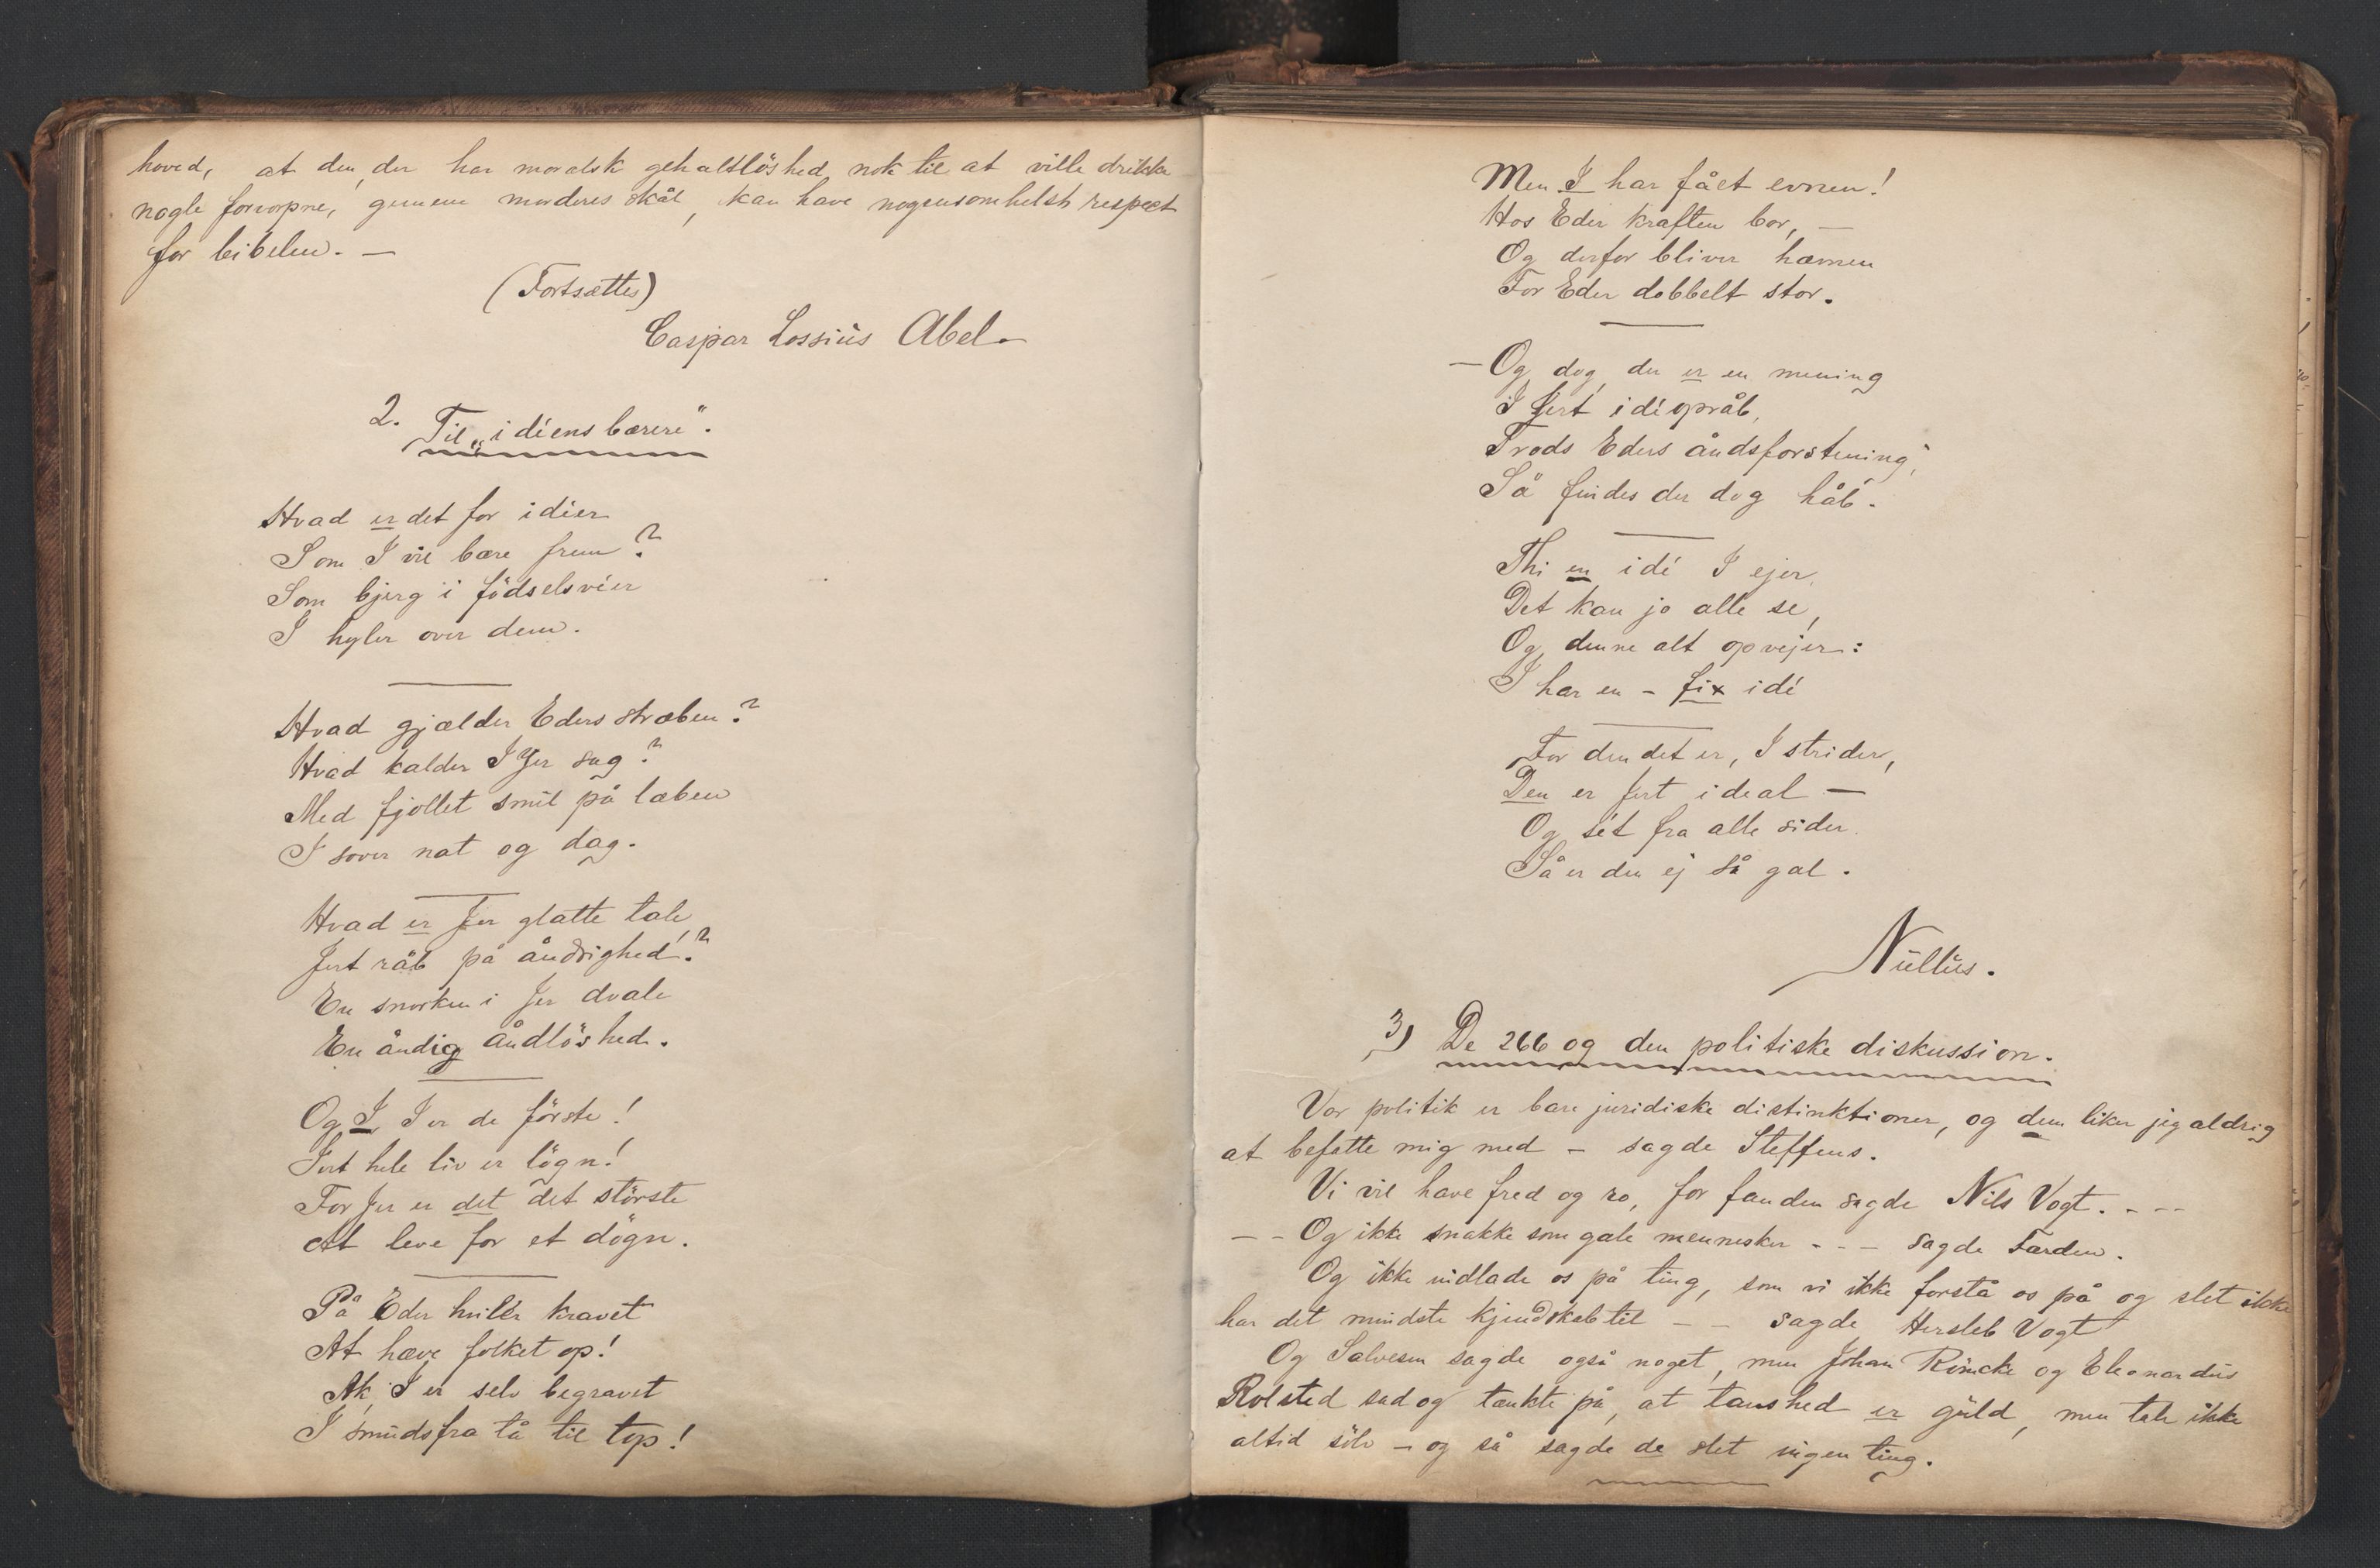 hoved, at den, der har moralsk gehaltløshed nok til at ville drikke
nogle forvorpne, gemene morderes skål, kan have nogensomhelst respect
for bibelen. —
(Fortsættes)
Caspar Lossius Abel.
2. Til „idéens bærere".
Hvad er det for idéer
Som I vil bære frem?
Som bjerg i födselsvéer
I hyler over dem.
Hvad gjælder Eders stræben?
Hvad kalder I Jer sag?
Med fjollet smil på læben
I sover nat og dag.
Hvad er Jer glatte tale,
Jert råb på åndrighed!?
En snorken i Jer dvale
En åndig åndlöshed.
Og I, I er de förste!
Jert hele liv er lögn!
For Jer er det det störste
At leve for et dögn.
På Eder hviler kravet
At hæve folket op!
Ak, I er selv begravet
I smuds fra tå til top!
Men I har fået evnen!
Hos Eder kraften bor, —
Og derfor bliver hævnen
For Eder dobbelt stor.
— Og dog, der er en mening
I Jert idéopråb,
Trods Eders åndsforstening,
Så findes der dog håb.
Thi en idé I ejer,
Det kan jo alle se,
Og denne alt opvejer:
I har en – fix idé
For den det er, I strider,
Den er Jert ideal —
Og sét fra alle sider
Så er den ej så gal.
Nullus.
3) De 266 og den politiske diskussion.
Vor politik er bare juridiske distinktioner, og dem liker jeg aldrig
at befatte mig med – sagde Steffens.
Vi vil have fred og ro, for fanden sagde Nils Vogt. - - -
- - Og ikke snakke som gale mennesker - - - sagde Færden.
Og ikke indlade os på ting, som vi ikke forstå os på og slet ikke
har det mindste kjendskab til - - sagde Hersleb Vogt
Og Salvesen sagde også noget, men Johan Rincke og Eleonardus
Rolsted sad og tænkte på, at taushed er guld, men tale ikke
altid sölv – og så sagde de slet ingen ting.